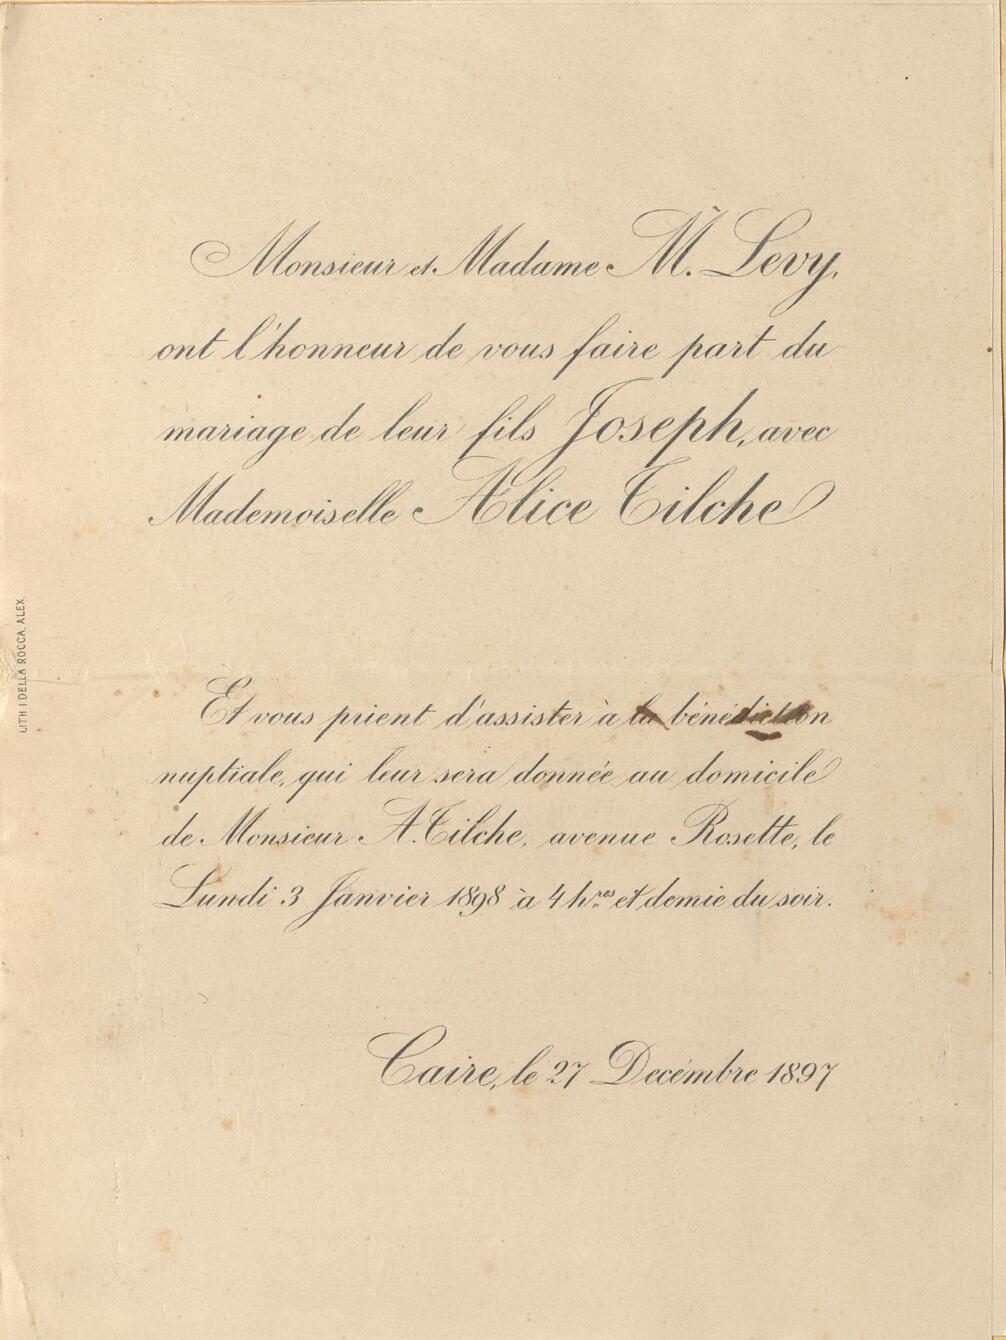 Monsieur et Madame M. Levy,
ont l'honneur de vous faire part du
mariage de leur fils Joseph, avec
Mademoiselle Alice Tilche
Et vous prient d'assister à la bénédiction
nuptiale, qui leur sera donnée au domicile
de Monsieur A. Tilche, avenue Rosette, le
Lundi 3 Janvier 1898 à 4 hres et demie du soir.
Caire, le 27 Decémbre 1897
LITH I DELLA ROCCA. ALEX.